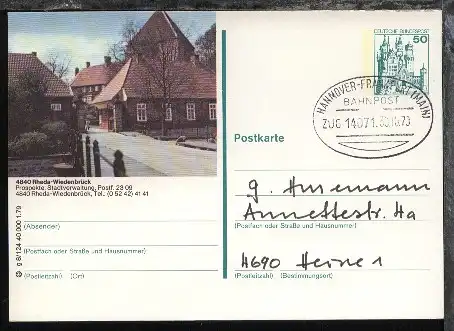 DEUTSCHE BUNDESPOST
50
HANNOVER-FRANKFURT(MAIN)
BAHNPOST
ZUG 14071
Postkarte
4840 Rheda-Wiedenbrück
Prospekte: Stadtverwaltung, Postf. 23 09
4840 Rheda-Wiedenbrück, Tel.: (0 52 42) 41 41
(Absender)
(Postfach oder Straße und Hausnummer)
(Postleitzahl) (Ort)
g 8/124 40 000 1.79
Annettestr. 4a
(Postfach oder Straße und Hausnummer)
4690 Herne 1
(Postleitzahl) (Bestimmungsort)